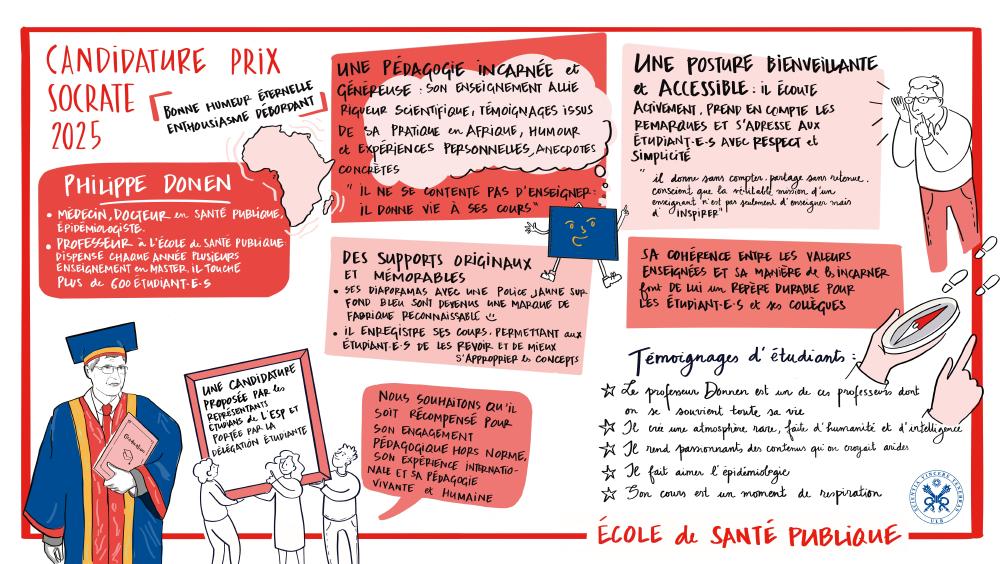 CANDIDATURE PRIX
SOCRATE
2025
BONNE HUMEUR ÉTERNELLE
ENTHOUSIASME DÉBORDANT
PHILIPPE DONEN
• MÉDECIN, DOCTEUR en SANTÉ PUBLIQUE,
ÉPIDÉMIOLOGISTE.
• PROFESSEUR à L'ÉCOLE de SANTÉ PUBLIQUE
DISPENSE CHAQUE ANNÉE PLUSIEURS
ENSEIGNEMENT en MASTER. iL TOUCHE
PLUS de 600 ÉTUDIANT·E·S
UNE CANDIDATURE
PROPOSÉE PAR les
REPRÉSENTANTS
ÉTUDIANS de L'ESP ET
PORTÉE PAR LA
DÉLÉGATION ÉTUDIANTE
UNE PÉDAGOGIE INCARNÉE et
GÉNÉREUSE : SON ENSEIGNEMENT ALLIE
RIGUEUR SCIENTIFIQUE, TÉMOIGNAGES ISSUS
DE SA PRATIQUE en AFRIQUE, HUMOUR
et EXPÉRIENCES PERSONNELLES, ANECDOTES
CONCRÈTES
" IL NE SE CONTENTE PAS D'ENSEIGNER:
iL DONNE VIE À SES COURS"
DES SUPPORTS ORIGINAUX
ET MÉMORABLES
• SES DIAPORAMAS AVEC UNE POLICE JAUNE SUR
FOND BLEU SONT DEVENUS UNE MARQUE DE
FABRIQUE RECONNAISSABLE
• IL ENREGISTRE SES COURS, PERMETTANT aux
ÉTUDIANT·E·S DE LES REVOIR ET DE MIEUX
S'APPROPRIER les CONCEPTS
NOUS SOUHAITONS QU'IL
SOIT RÉCOMPENSÉ POUR
SON ENGAGEMENT
PÉDAGOGIQUE HORS NORME,
SON EXPÉRIENCE INTERNATIO-
NALE ET SA PÉDAGOGIE
VIVANTE et HUMAINE
UNE POSTURE BIENVEILLANTE
et ACCESSIBLE : iL ÉCOUTE
ACTIVEMENT, PREND EN COMPTE LES
REMARQUES ET S'ADRESSE AUX
ÉTUDIANT·E·S AVEC RESPECT et
SIMPLICITÉ
" il donne sans compter, partage sans retenue,
conscient que la véritable mission d'un
enseignant n'est pas seulement d'enseigner mais
d' INSPIRER"
SA COHÉRENCE ENTRE LES VALEURS
ENSEIGNÉES ET SA MANIÈRE de les INCARNER
font DE LUI un REPÈRE DURABLE POUR
LES ÉTUDIANT·E·S et ses COLLÈGUES
Témoignages d'étudiants :
Le professeur Donnen est un de ces professeurs dont
on se souvient toute sa vie
Il crée une atmosphère rare, faite d'humanité et d'intelligence
Il rend passionnants des contenus qu'on croyait arides
Il fait aimer l'épidémiologie
Son cours est un moment de respiration
SCIENTIA VINCERE TENEBRAS
ULB
ÉCOLE de SANTÉ PUBLIQUE